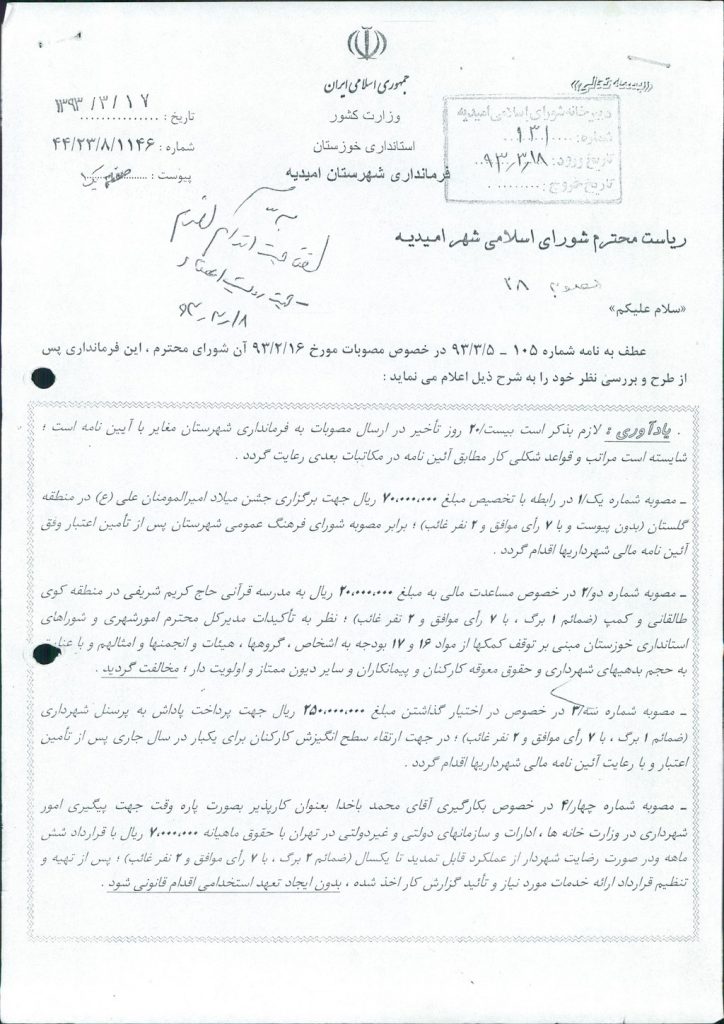 «بسمه تعالی»
جمهوری اسلامی ایران
وزارت کشور
استانداری خوزستان
فرمانداری شهرستان امیدیه
تاریخ : ۱۳۹۳/۳/۱۷
شماره : ۴۴/۲۳/۸/۱۱۴۶
پیوست :
دبیرخانه شورای اسلامی امیدیه
شماره: ۹۳۱
تاریخ ورود: ۹۳/۳/۱۸
تاریخ خروج:
ریاست محترم شورای اسلامی شهر امیدیه
«سلام علیکم»
عطف به نامه شماره ۱۰۵ – ۹۳/۳/۵ در خصوص مصوبات مورخ ۹۳/۲/۱۶ آن شورای محترم ، این فرمانداری پس
از طرح و بررسی نظر خود را به شرح ذیل اعلام می نماید :
. یادآوری : لازم بذکر است بیست/۲۰ روز تأخیر در ارسال مصوبات به فرمانداری شهرستان مغایر با آیین نامه است ؛
شایسته است مراتب و قواعد شکلی کار مطابق آئین نامه در مکاتبات بعدی رعایت گردد .
– مصوبه شماره یک/۱ در رابطه با تخصیص مبلغ ۷۰,۰۰۰,۰۰۰ ریال جهت برگزاری جشن میلاد امیرالمومنان علی (ع) در منطقه
گلستان (بدون پیوست و با ۷ رأی موافق و ۲ نفر غائب) ؛ برابر مصوبه شورای فرهنگ عمومی شهرستان پس از تأمین اعتبار وفق
آئین نامه مالی شهرداریها اقدام گردد .
– مصوبه شماره دو/۲ در خصوص مساعدت مالی به مبلغ ۲۰,۰۰۰,۰۰۰ ریال به مدرسه قرآنی حاج کریم شریفی در منطقه کوی
طالقانی و کمپ (ضمائم ۱ برگ ، با ۷ رأی موافق و ۲ نفر غائب) ؛ نظر به تأکیدات مدیرکل محترم امورشهری و شوراهای
استانداری خوزستان مبنی بر توقف کمکها از مواد ۱۶ و ۱۷ بودجه به اشخاص ، گروهها ، هیئات و انجمنها و امثالهم و با
به حجم بدهیهای شهرداری و حقوق معوقه کارکنان و پیمانکاران و سایر دیون ممتاز و اولویت دار ؛ مخالفت گردید .
– مصوبه شماره سه/۳ در خصوص در اختیار گذاشتن مبلغ ۲۵۰,۰۰۰,۰۰۰ ریال جهت پرداخت پاداش به پرسنل شهرداری
(ضمائم ۱ برگ ، با ۷ رأی موافق و ۲ نفر غائب) ؛ در جهت ارتقاء سطح انگیزش کارکنان برای یکبار در سال جاری پس از تأمین
اعتبار و با رعایت آئین نامه مالی شهرداریها اقدام گردد .
– مصوبه شماره چهار/۴ در خصوص بکارگیری آقای محمد باخدا بعنوان کارپذیر بصورت پاره وقت جهت پیگیری امور
شهرداری در وزارت خانه ها ، ادارات و سازمانهای دولتی و غیردولتی در تهران با حقوق ماهیانه ۷,۰۰۰,۰۰۰ ریال با قرارداد شش
ماهه ودر صورت رضایت شهردار از عملکرد قابل تمدید تا یکسال (ضمائم ۲ برگ ، با ۷ رأی موافق و ۲ نفر غائب) ؛ پس از تهیه و
تنظیم قرارداد ارائه خدمات مورد نیاز و تأئید گزارش کار اخذ شده ، بدون ایجاد تعهد استخدامی اقدام قانونی شود .